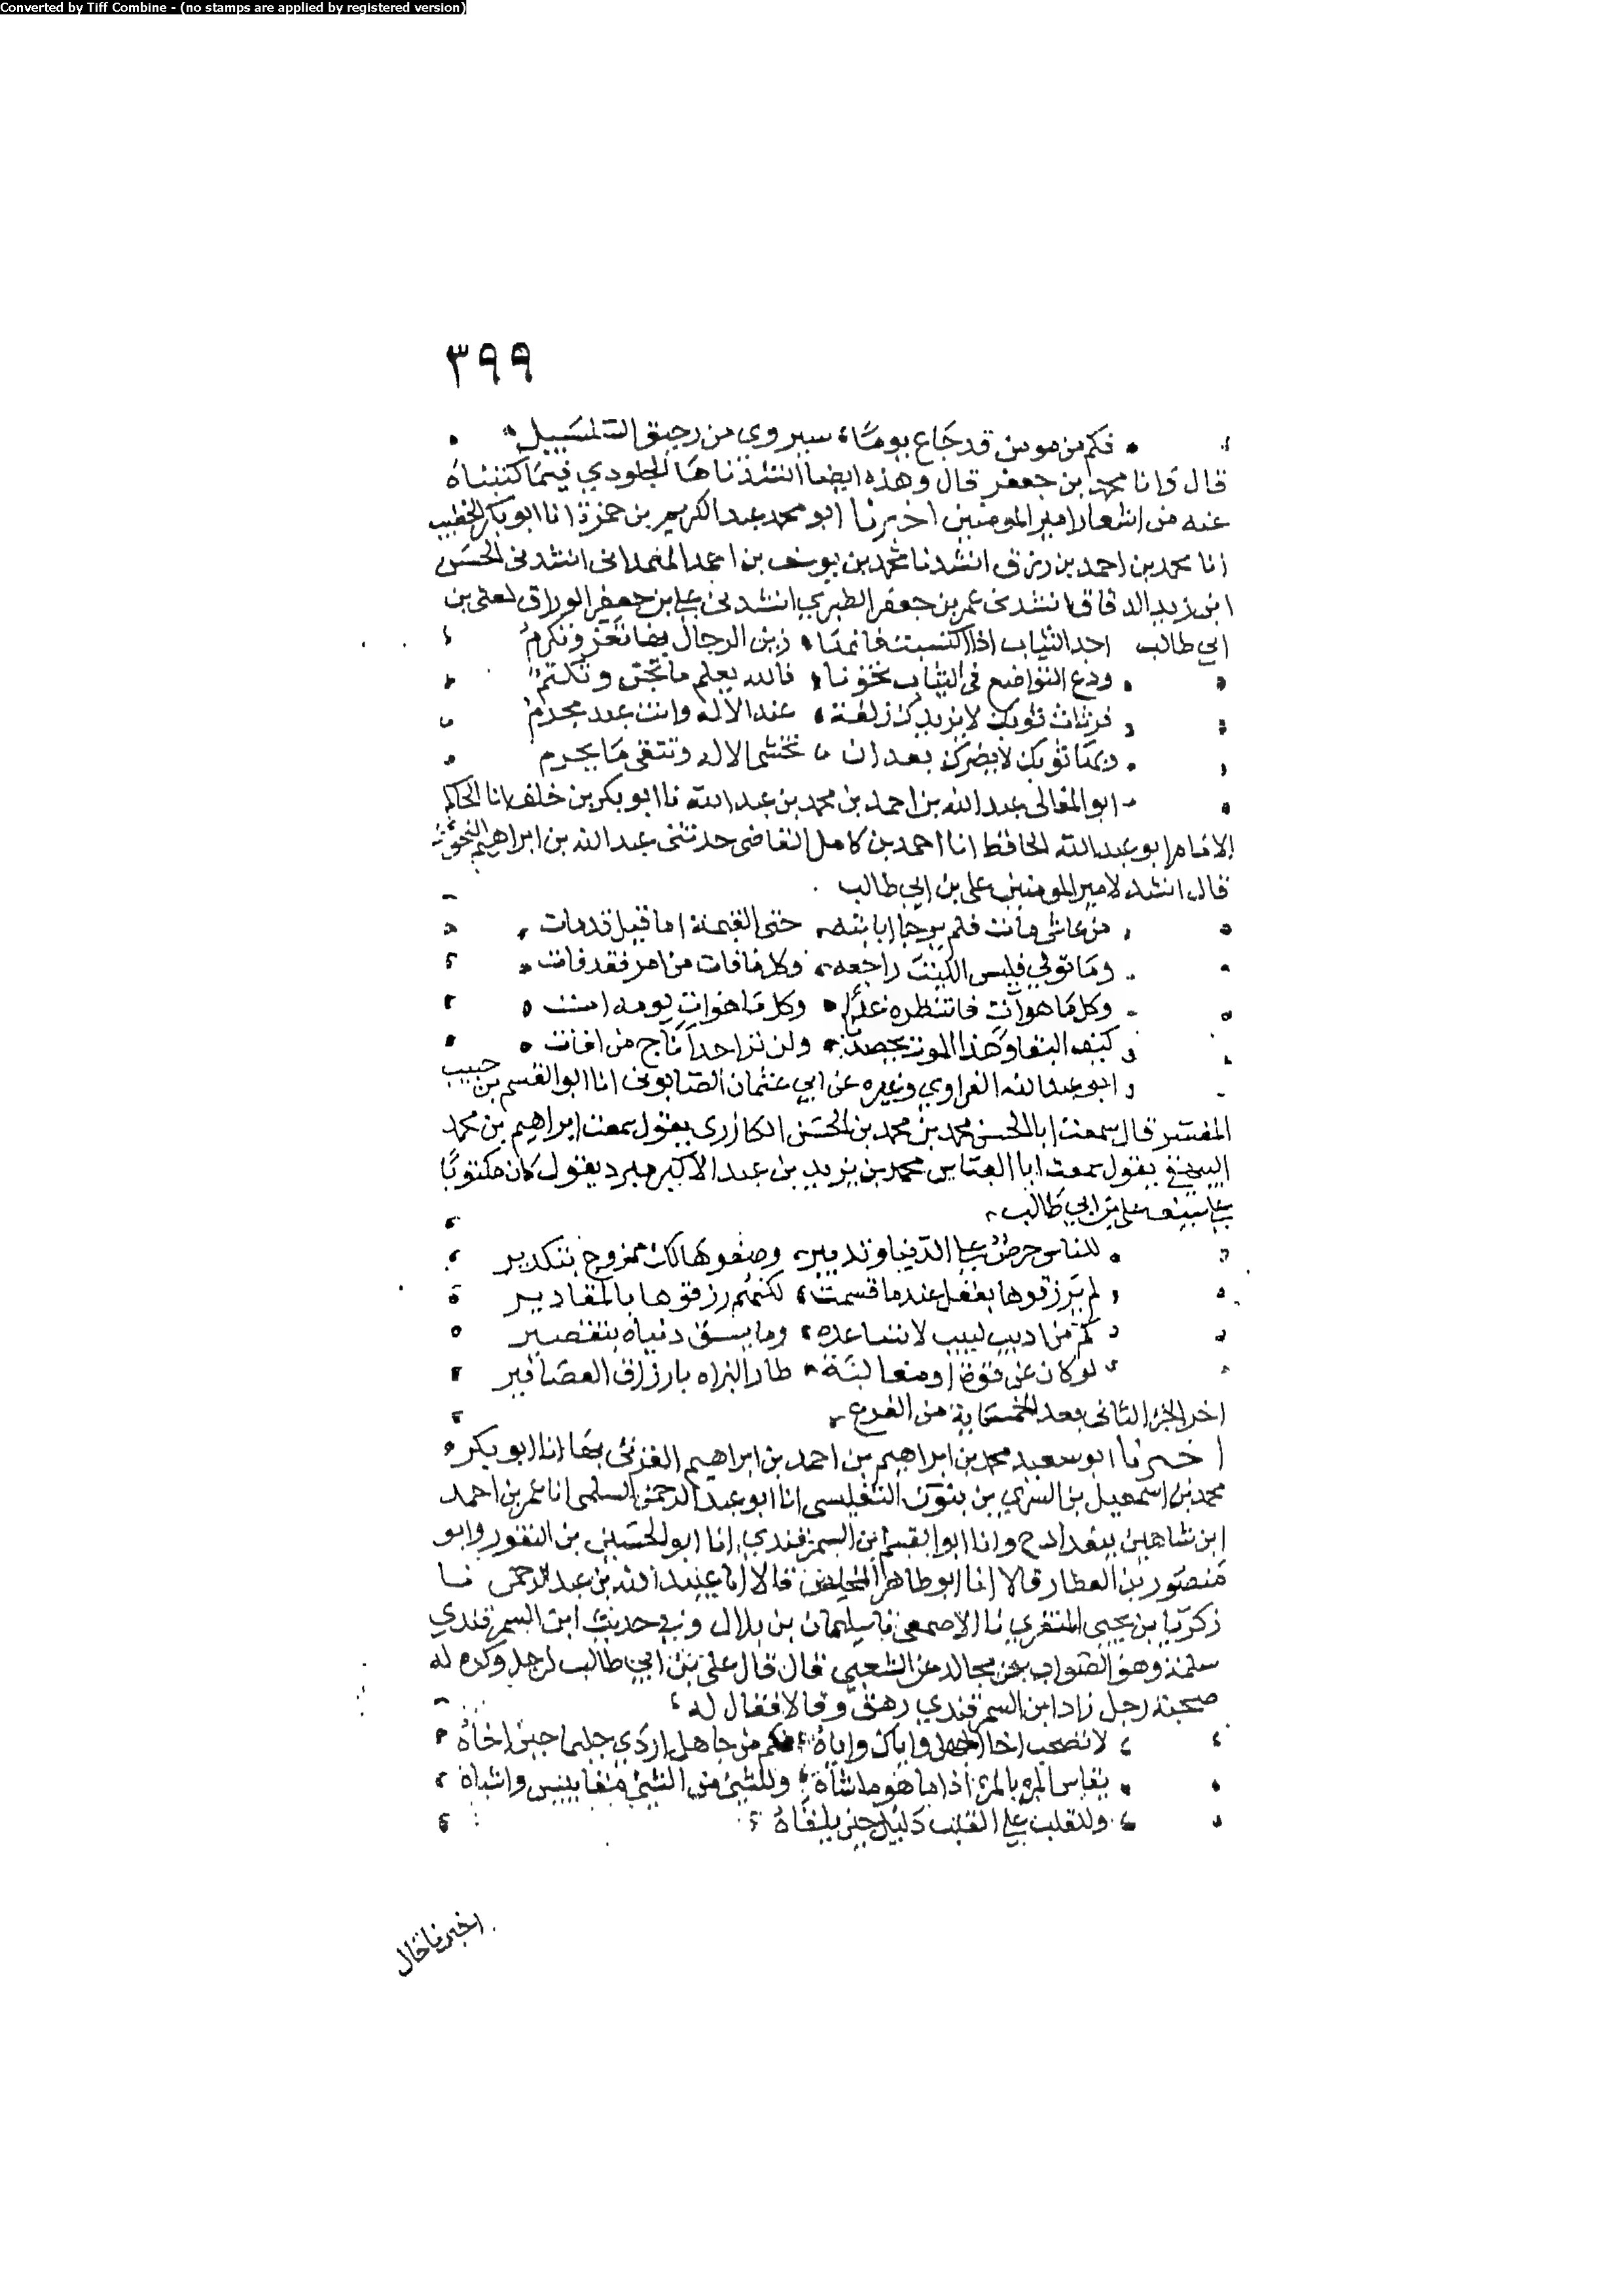 Converted by Tiff Combine - (no stamps are applied by registered version)
٣٩٩
فكم من مومن قد جاع يومًا سيروى من رحيق السلسبيل
قال وانا محمد بن جعفر قال وهذه ايضا انشدناها الجلودي فيما كتبناه
عنه من اشعار امير المومنين اخبرنا ابو محمد عبد الكريم بن حمزة انا ابو بكر الخطيب
انا محمد بن احمد بن رزق انشدنا محمد بن يوسف بن الهمداني انشدني الحسن
ابن الدقاق انشدني عمر بن جعفر الطبري انشدني علي بن جعفر الوراق لعلي بن
ابي طالب اجد الثياب اذا اكتسيت فانها زين الرجال بها تعز وتكرم
ودع التواضع في الثياب تخوفا فالله يعلم ما تجن وتكتم
فرثاث ثوبك لا يزيدك زلفة عند الاله وانت عبد مجرم
وبها ثوبك لا يضرك بعد ان تخشى الاله وتتقي ما يحرم
ابو المعالي عبد الله بن احمد بن محمد بن عبد الله نا ابو بكر بن خلف انا الحاكم
الامام ابو عبد الله الحافظ انا احمد بن كامل القاضي حدثني عبد الله بن ابراهيم النحوي
قال انشد لامير المومنين علي بن ابي طالب
حتى القيمة اما قيل قد مات
وما تولى فليس الليت راجعه وكل ما فات من امر فقد فات
وكل ما هو آت فانتظره وكل ما هو ات يومه
كيف البقا وهذا الموت ولن ترا احدا ناج من افات
ابو عبد الله الفراوي وغيره عن ابي عثمان الصابوني انا ابو القسم بن حبيب
المفسر قال سمعت ابا الحسن محمد بن محمد بن الحسن الكازري يقول سمعت ابراهيم بن محمد
يقول سمعت ابا العباس محمد بن يزيد بن عبد الاكبر مبرد يقول كان مكتوبًا
على سيف علي بن ابي طالب
للناس حرص على الدنيا وتدبير وصفوها لك ممزوج بتكدير
لم يرزقوها بعقل عندما قسمت لكنهم رزقوها بالمقادير
كم من اديب لبيب لا تساعده دنياه بتقصير
لو كان عن قوة او مغالبة طار البزاه بارزاق العصافير
اخر الجزء الثاني بعد الخمسماية من الفرع
اخبرنا ابو سعيد محمد بن ابراهيم بن احمد بن ابراهيم بها انا ابو بكر
محمد بن اسمعيل بن السري بن بنون التفليسي انا ابو عبد الرحمن السلمي انا عمر بن احمد
ابن شاهين ببغداد ح وانا ابو القسم ابن السمرقندي انا ابو الحسين بن النقور وابو
منصور بن العطار قالا انا ابو طاهر المخلص قالا انا عبيد الله بن عبد الرحمن نا
زكريا بن يحيى المنقري نا الاصمعي نا سليمان بن بلال وفي حديث ابن السمرقندي
سلمة وهو الصواب عن مجالد عن الشعبي قال قال علي بن ابي طالب لرجل وكره له
صحبة رجل زاد ابن السمرقندي رهق وقالا فقال له
لا تصحب اخا الجهل واياك واياه فكم من جاهل اردى حليما حين اخاه
يقاس المرء بالمرء اذا ما هو ماشاه وللشئ من الشئ مقاييس واشباه
وللقلب على القلب دليل حين يلقاه
اخبرنا خال